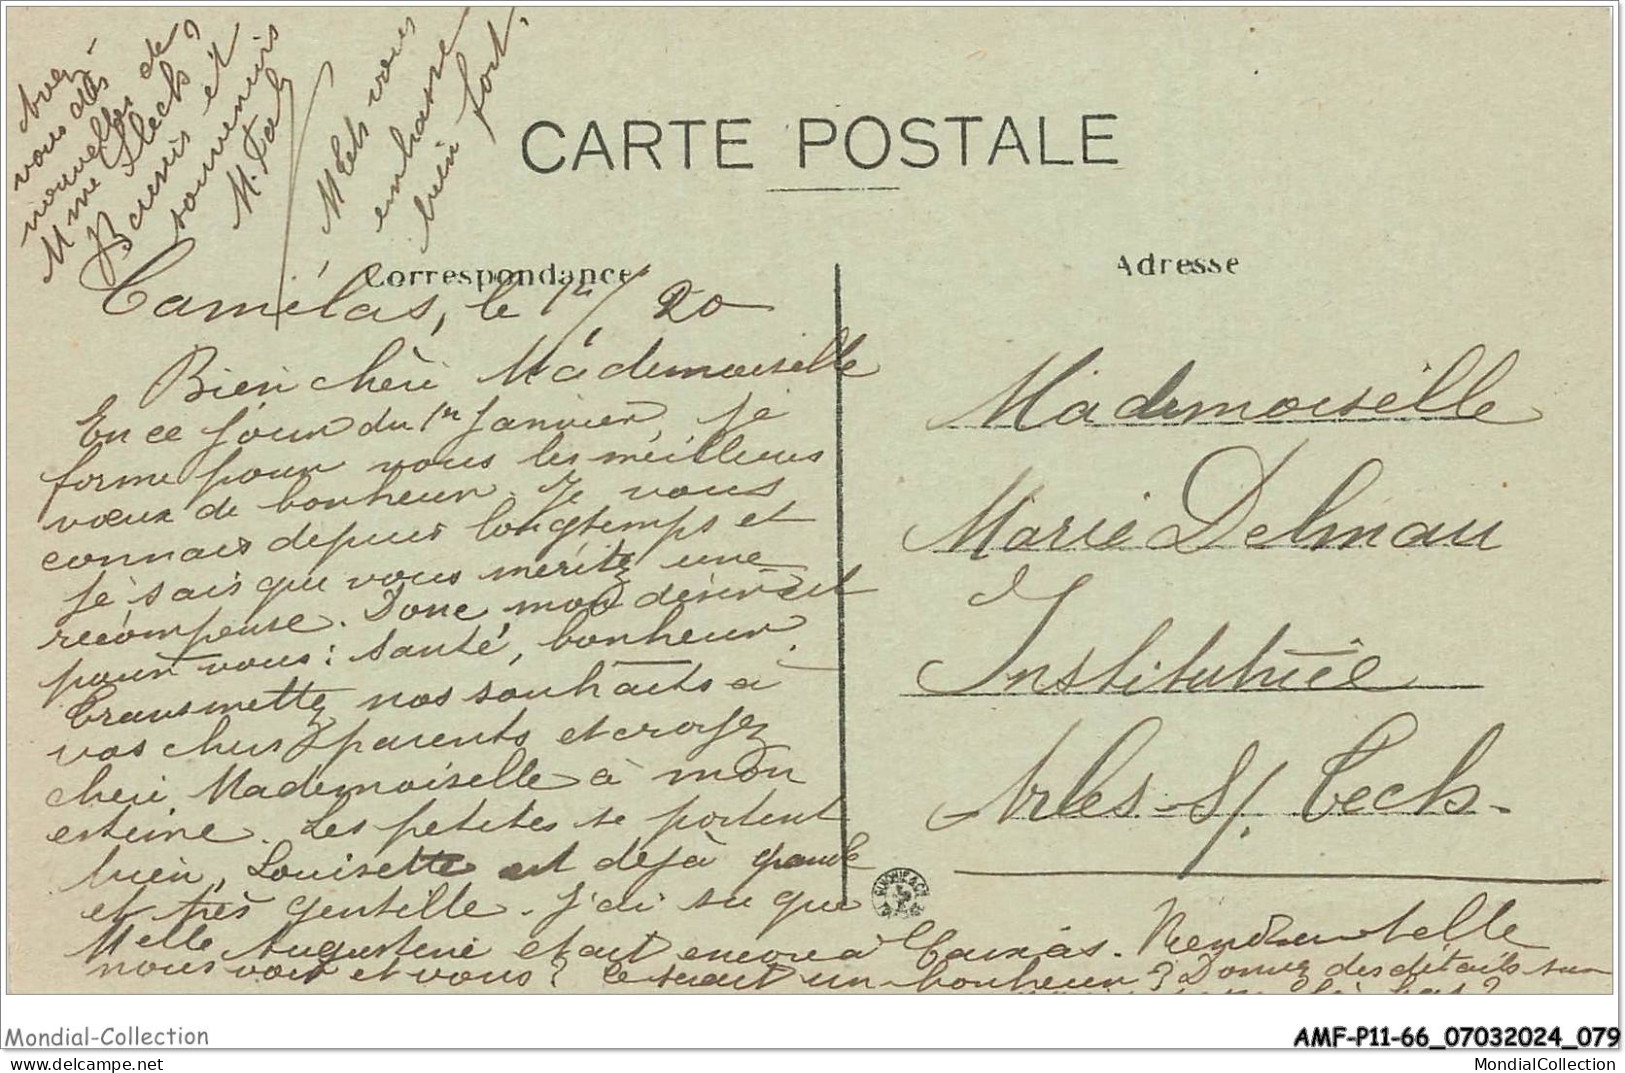 CARTE POSTALE
Correspondance
Adresse
Camélas, le 1er/1/20
Bien chère Mademoiselle
En ce jour du 1er Janvier, je
forme pour vous les meilleurs
vœux de bonheur. Je vous
connais depuis longtemps et
je sais que vous méritez une
récompense. Donc, mon désir est
pour vous : santé, bonheur.
Transmettez nos souhaits à
vos chers parents et croyez
chère Mademoiselle à mon
estime. Les petites se portent
bien, Louisette est déjà grande
et très gentille. J'ai su que
Melle Augustine était encore à Caixas. Viendra-t-elle
nous voir et vous ? Ce serait un bonheur ? Donnez des détails sur
Avez-
vous des
nouvelles de
Mme
Baisers et
souvenirs
M.
Mets vous
embrasse
bien fort.
Mademoiselle
Marie Delmau
Institutrice
Arles-s/-Tech-
Mondial-Collection
AMF-P11-66_07032024_079
delcampe.net
MondialCollection